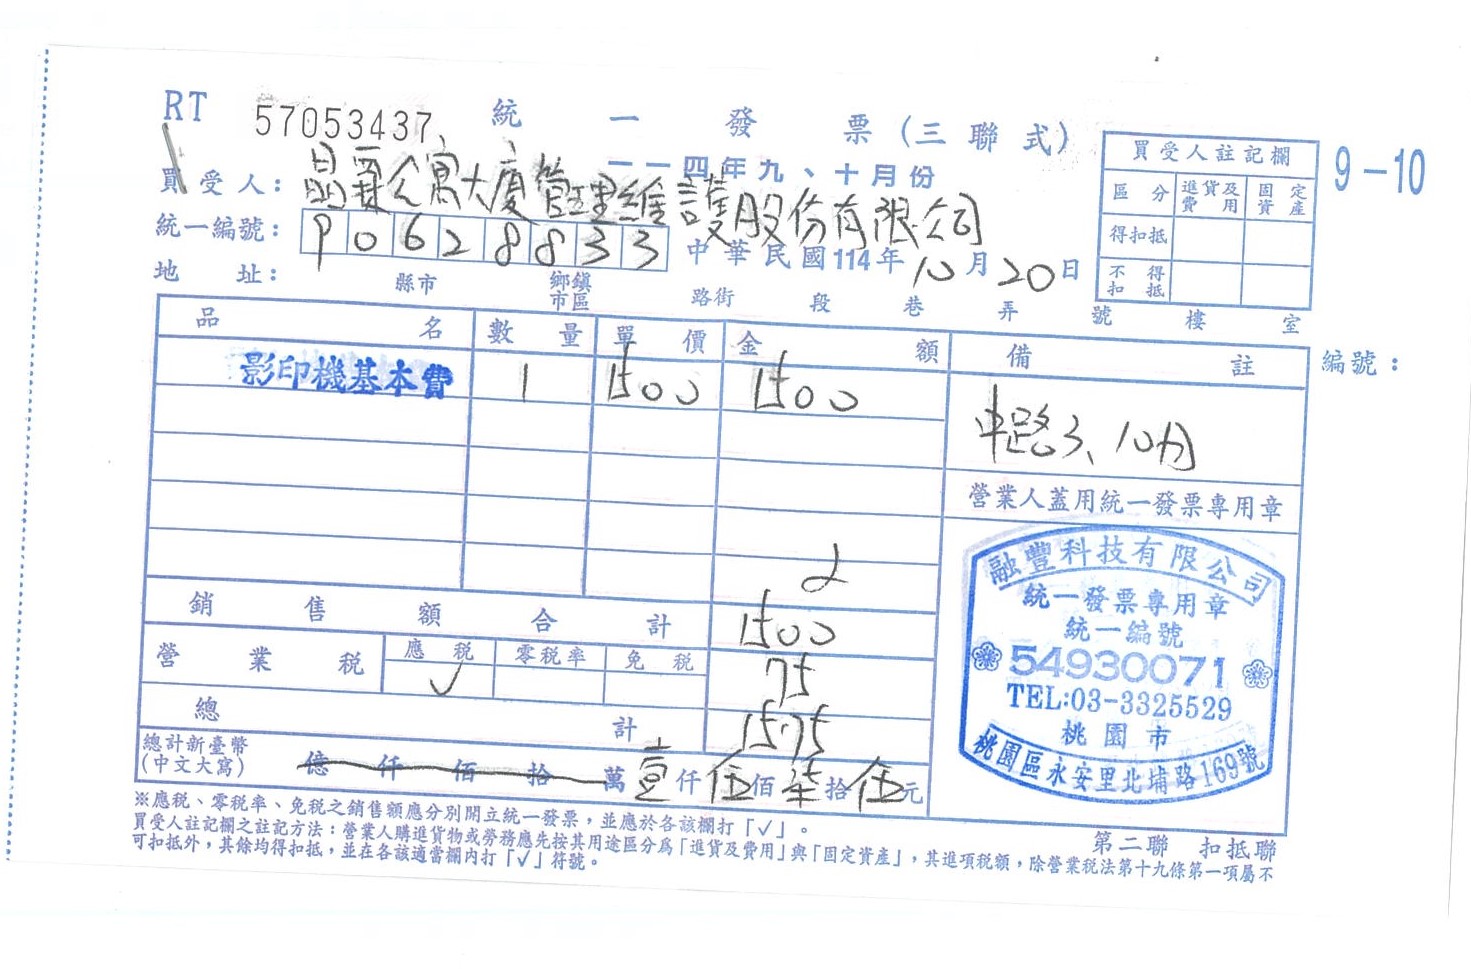 RT 57053437 統一發票(三聯式)
一一四年九、十月份
9-10
買受人:晶贊公寓大廈管理維護股份有限公司
統一編號:90628833
中華民國114年10月20日
地址: 縣市 鄉鎮市區 路街 段 巷 弄 號 樓 室
買受人註記欄
區分 進貨及費用 固定資產
得扣抵
不得扣抵
品名 數量 單價 金額 備註 編號:
影印機基本費 1 1500 1500
中路3、10月
營業人蓋用統一發票專用章
銷售額合計 1500
營業稅 應稅 零稅率 免稅 75
√
總計 1575
總計新臺幣(中文大寫) 億仟佰拾萬壹仟伍佰柒拾伍元
融豐科技有限公司
統一發票專用章
統一編號
54930071
TEL:03-3325529
桃園市
桃園區永安里北埔路169號
※應稅、零稅率、免稅之銷售額應分別開立統一發票,並應於各該欄打「√」。
買受人註記欄之註記方法:營業人購進貨物或勞務應先按其用途區分為「進貨及費用」與「固定資產」,其進項稅額,除營業稅法第十九條第一項屬不
可扣抵外,其餘均得扣抵,並在各該適當欄內打「√」符號。
第二聯 扣抵聯